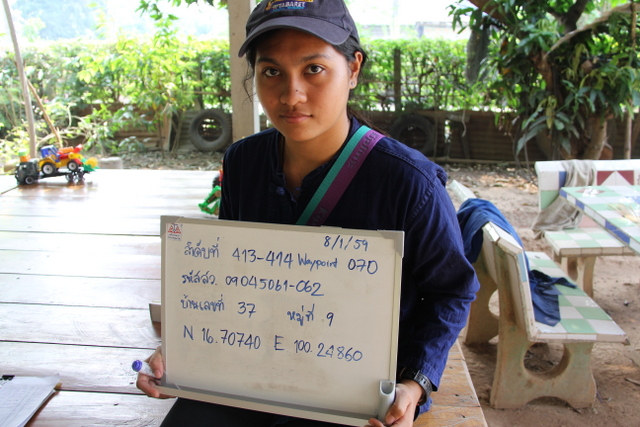 8/1/59
ลำดับที่ 413-414 Waypoint 070
รหัสสว. 09045061-062
บ้านเลขที่ 37 หมู่ที่ 9
N 16.70740 E 100.24860